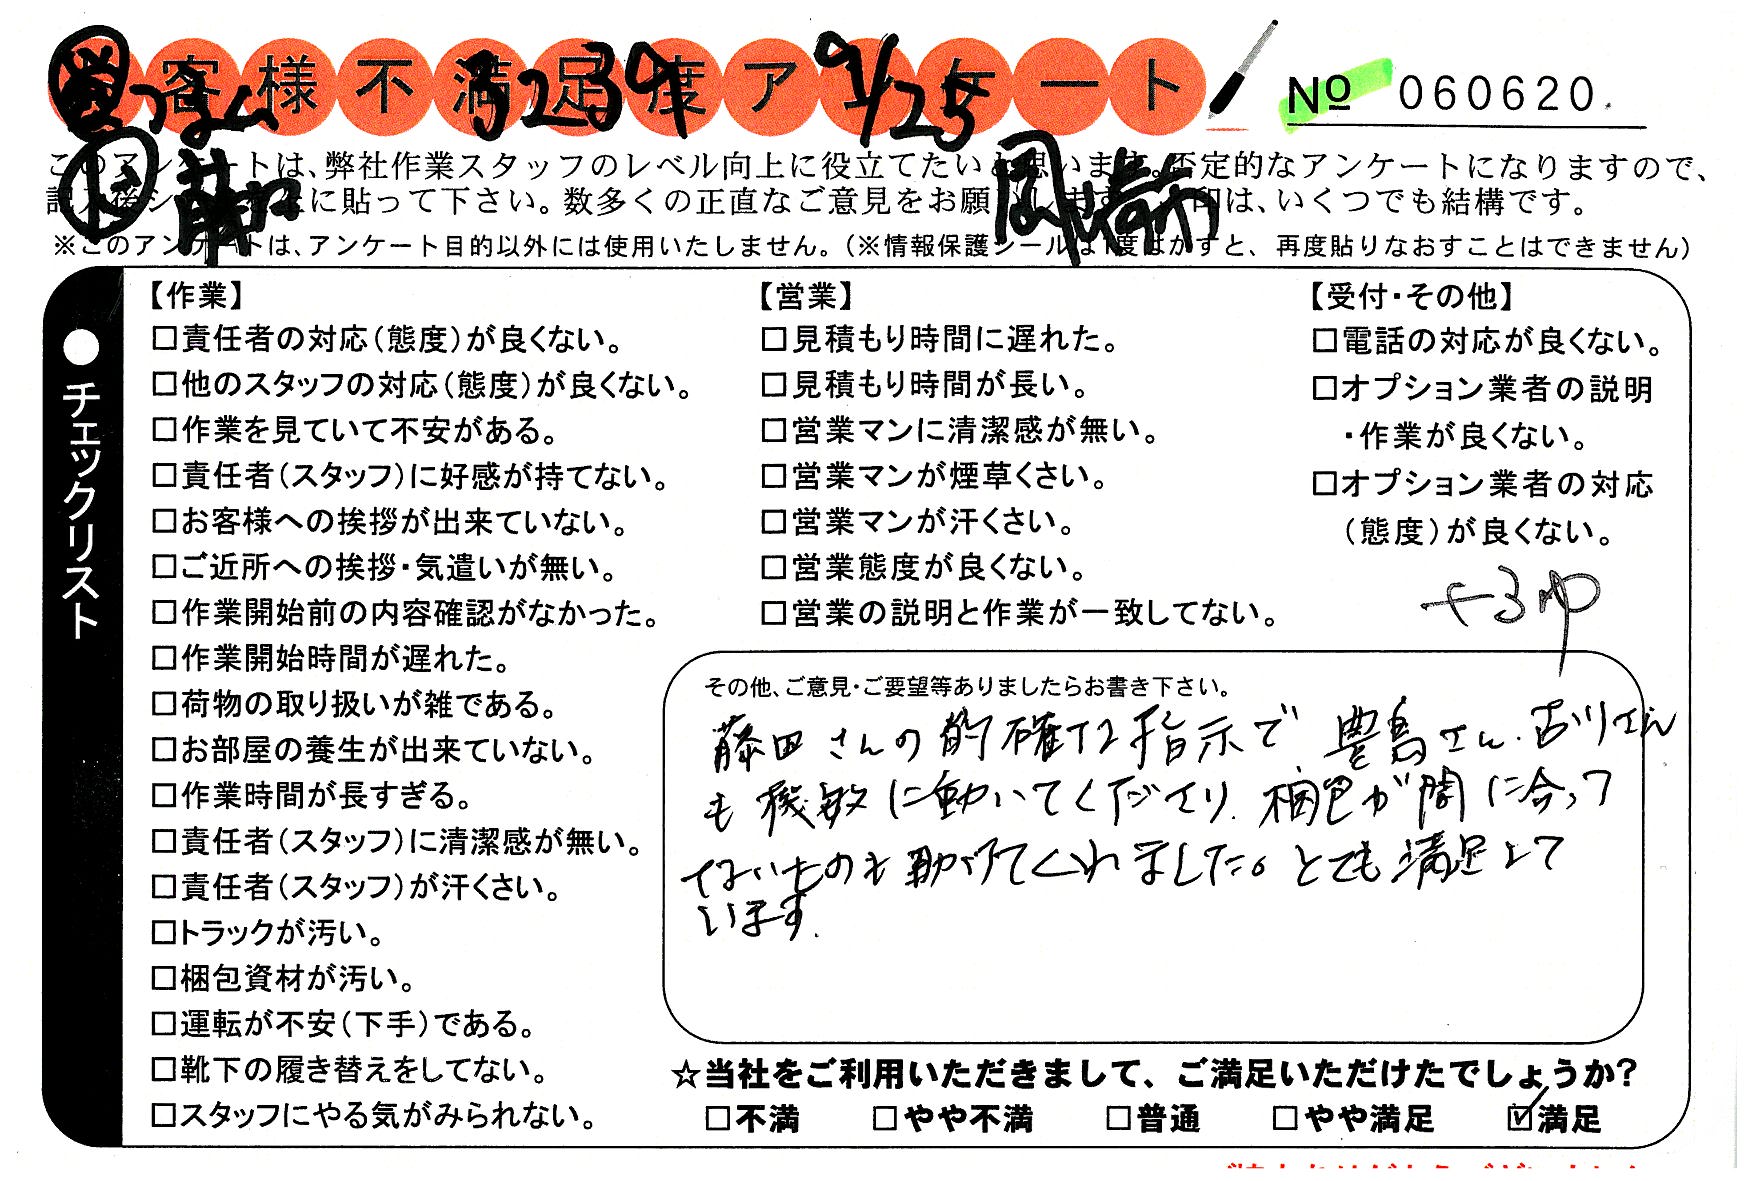 お客様不満足度アンケート
3239
9/25
No 060620
このアンケートは、弊社作業スタッフのレベル向上に役立てたいと思います。否定的なアンケートになりますので、
記入後シールを上に貼って下さい。数多くの正直なご意見をお願いします。 印は、いくつでも結構です。
岡崎市
※このアンケートは、アンケート目的以外には使用いたしません。(※情報保護シールは1度はがすと、再度貼りなおすことはできません)
●チェックリスト
【作業】
□責任者の対応(態度)が良くない。
□他のスタッフの対応(態度)が良くない。
□作業を見ていて不安がある。
□責任者(スタッフ)に好感が持てない。
□お客様への挨拶が出来ていない。
□ご近所への挨拶・気遣いが無い。
□作業開始前の内容確認がなかった。
□作業開始時間が遅れた。
□荷物の取り扱いが雑である。
□お部屋の養生が出来ていない。
□作業時間が長すぎる。
□責任者(スタッフ)に清潔感が無い。
□責任者(スタッフ)が汗くさい。
□トラックが汚い。
□梱包資材が汚い。
□運転が不安(下手)である。
□靴下の履き替えをしてない。
□スタッフにやる気がみられない。
【営業】
□見積もり時間に遅れた。
□見積もり時間が長い。
□営業マンに清潔感が無い。
□営業マンが煙草くさい。
□営業マンが汗くさい。
□営業態度が良くない。
□営業の説明と作業が一致してない。
【受付・その他】
□電話の対応が良くない。
□オプション業者の説明
・作業が良くない。
□オプション業者の対応
(態度)が良くない。
その他、ご意見・ご要望等ありましたらお書き下さい。
藤田さんの的確な指示で 豊島さん、おりさん
も機敏に動いてくださり、梱包が間に合って
ないものも助けてくれました。とても満足して
います。
☆当社をご利用いただきまして、ご満足いただけたでしょうか?
□不満 □やや不満 □普通 □やや満足 ☑満足